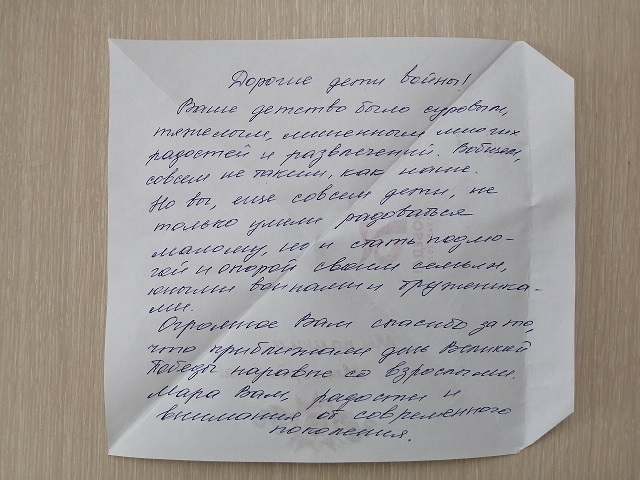 Дорогие дети войны!
Ваше детство было суровым,
тяжелым, лишенным многих
радостей и развлечений. Вобщем,
совсем не таким, как наше.
Но вы, еще совсем дети, не
только умели радоваться
малому, но и стать подмо-
гой и опорой своим семьям,
юными воинами и труженика-
ми.
Огромное Вам спасибо за то,
что приближали день Великой
Победы наравне со взрослыми.
Мира Вам, радости и
внимания от современного
поколения.